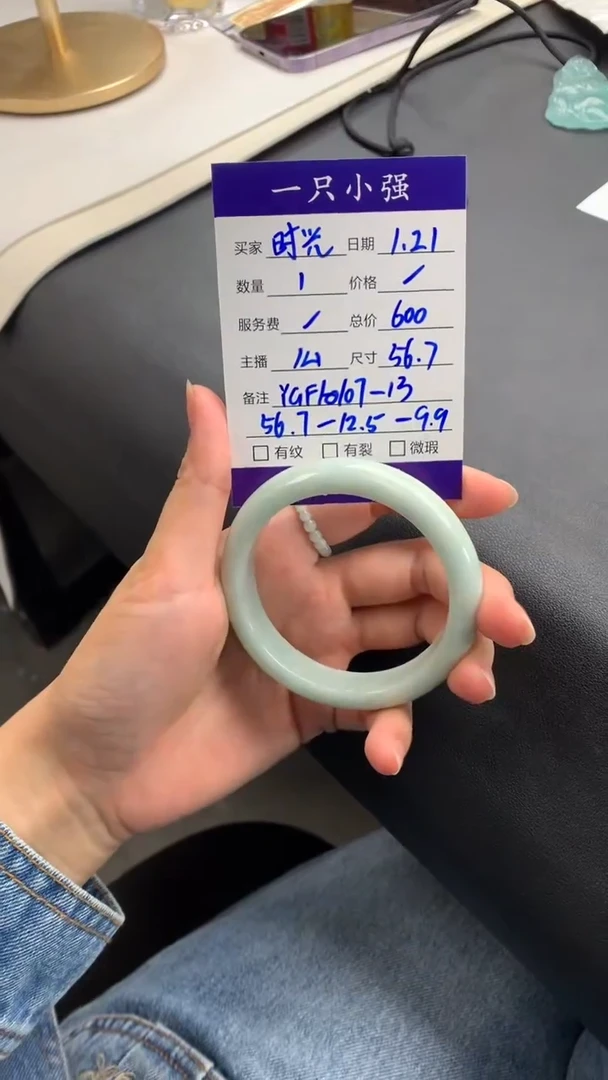 一只小强
买家 时光 日期 1.21
数量 1 价格 /
服务费 / 总价 600
主播 尺寸 56.7
备注
56.7-12.5-9.9
□ 有纹 □ 有裂 □ 微瑕